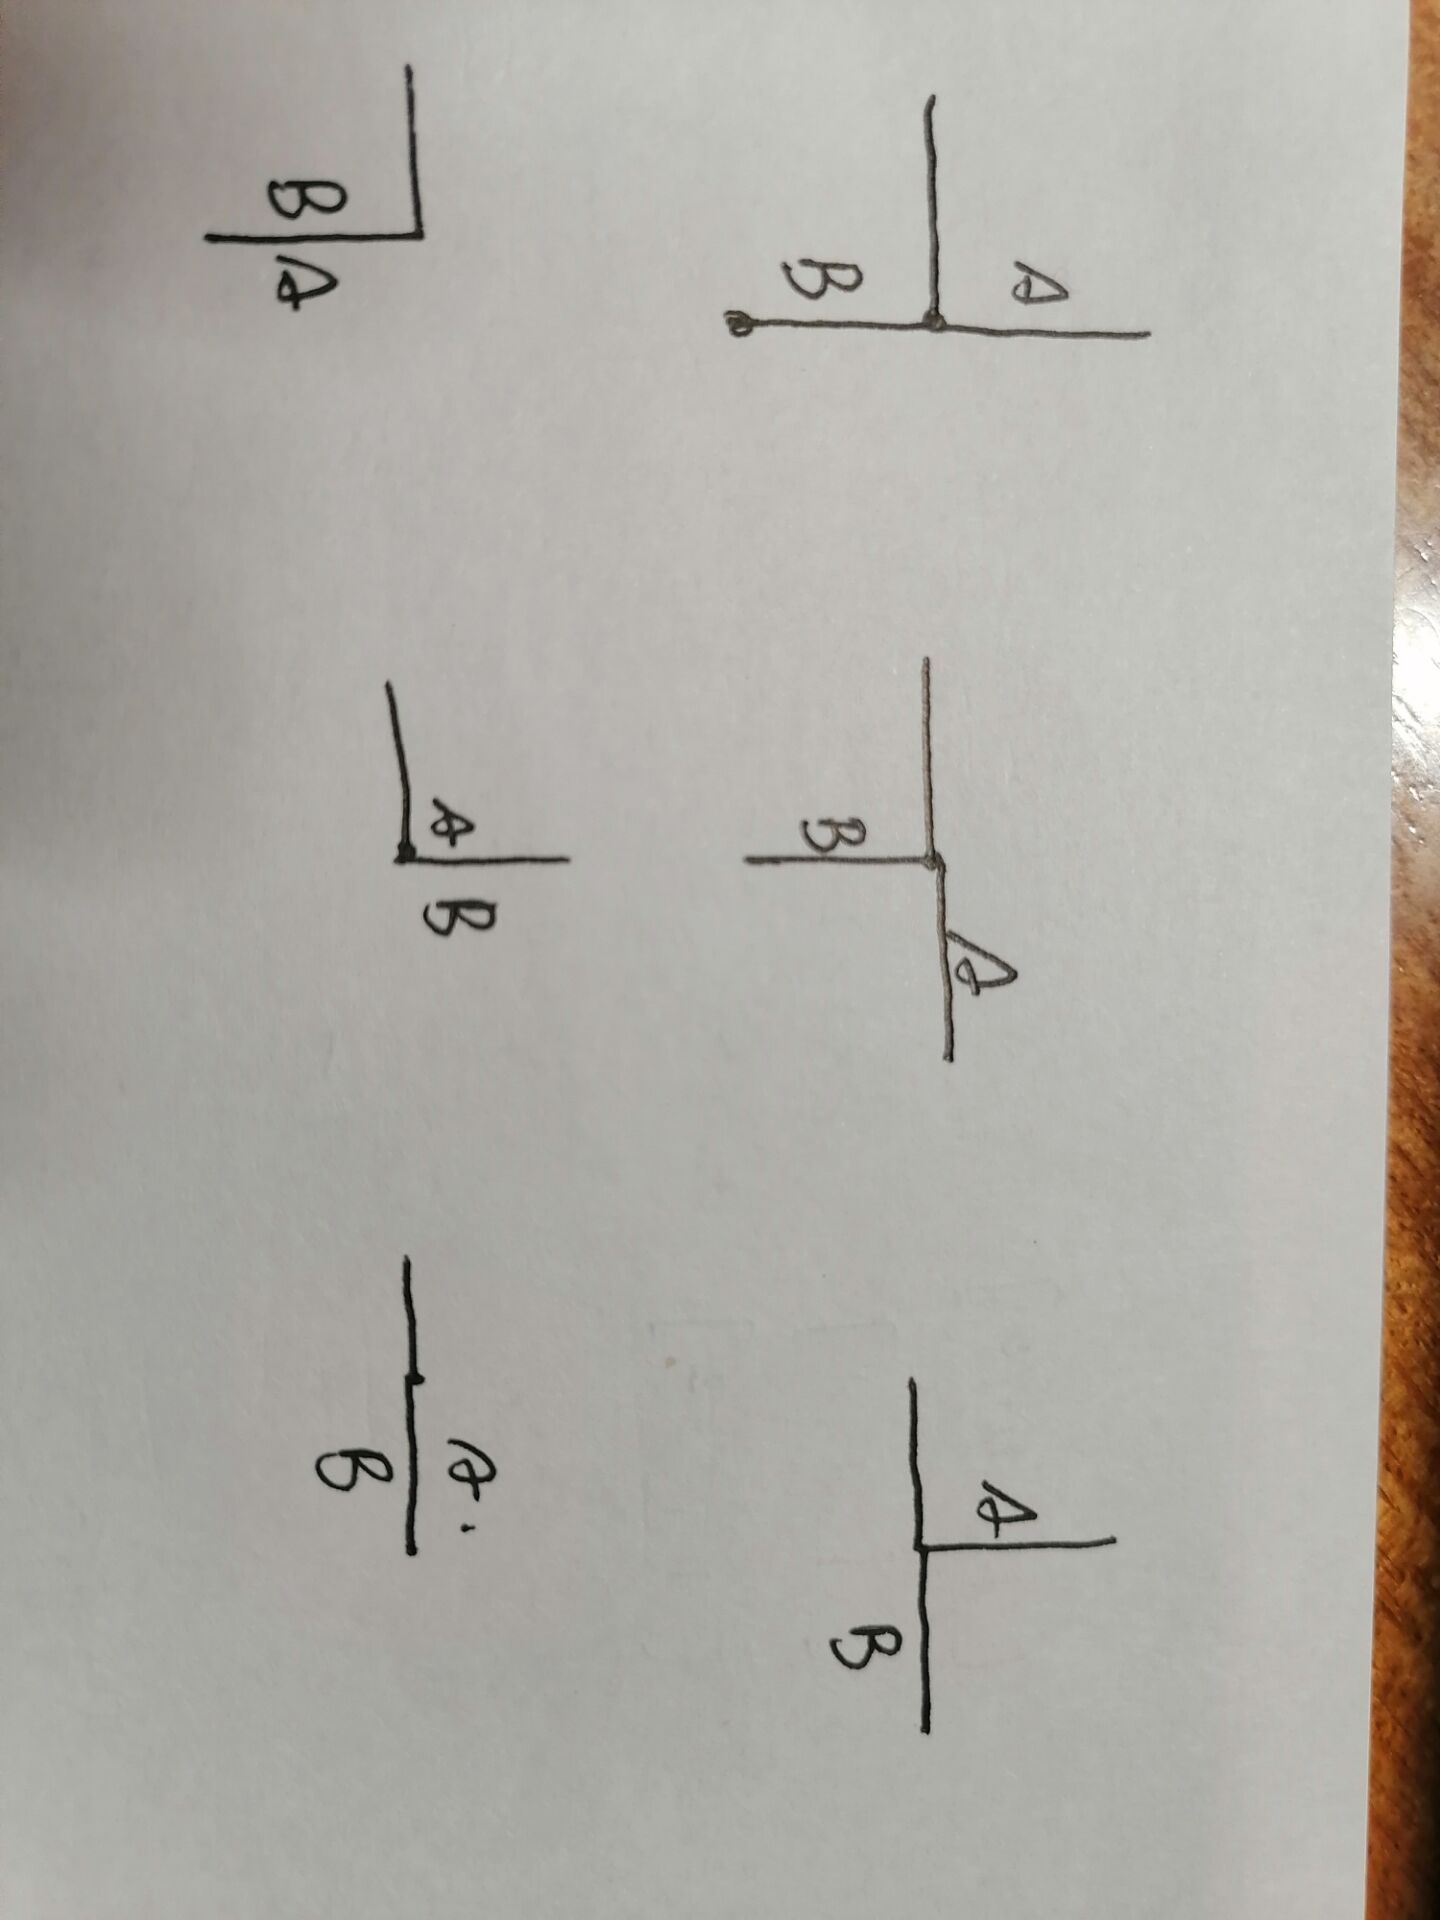 A
A
A
B
B
B
B A
A B
A.
B